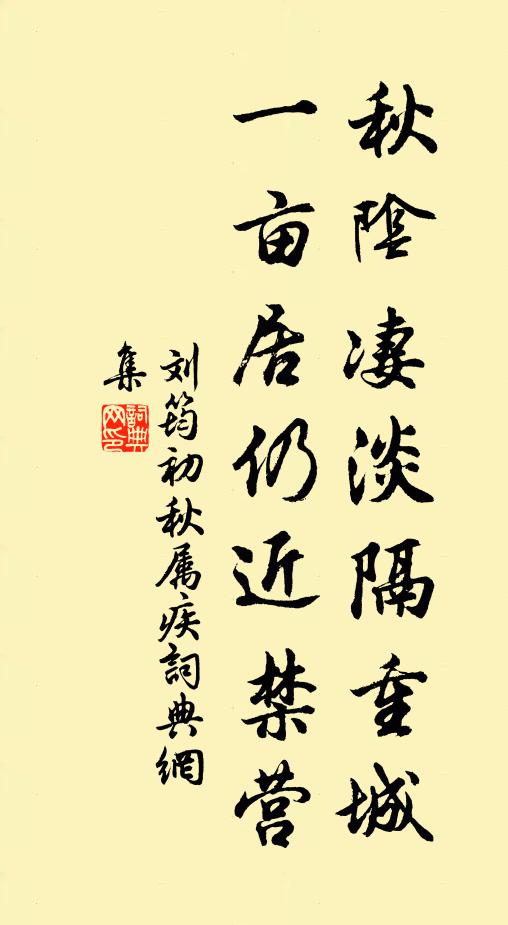 秋陰凄淡隔重城
一亩居仍近禁营
刘筠初秋属疾詞典網
集
詞典網印